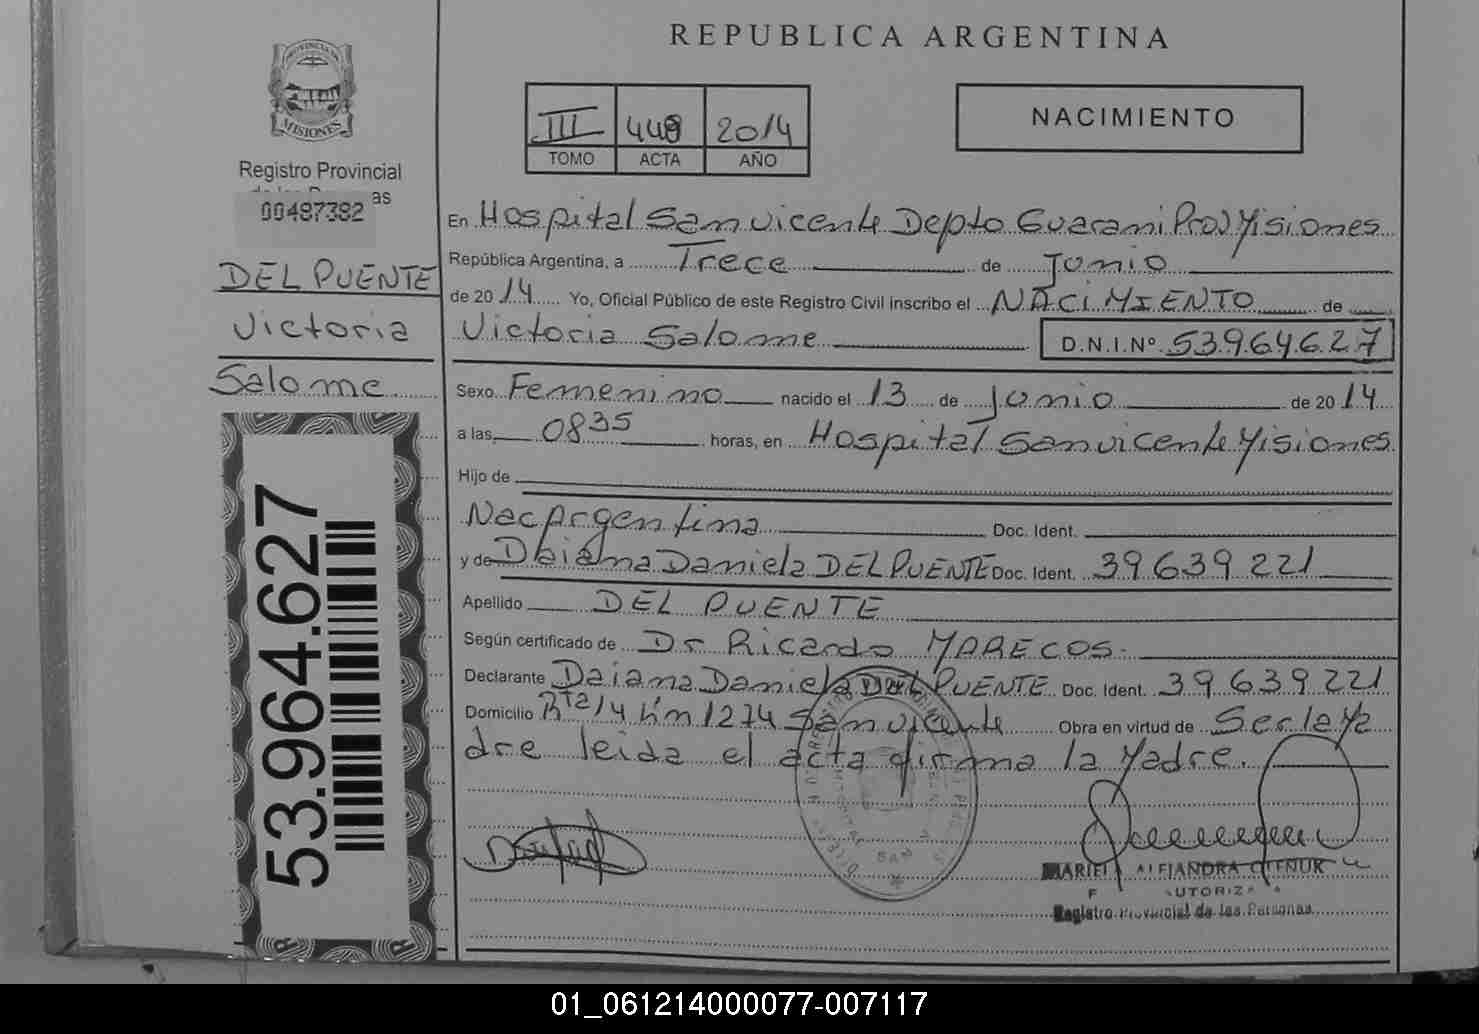 REPUBLICA ARGENTINA
PROVINCIA DE
MISIONES
Registro Provincial
as
00487382
DEL PUENTE
Victoria
Salome
53.964.627
III 448 2014
TOMO ACTA AÑO
NACIMIENTO
En Hospital San vicente Depto Guarani Prov Misiones
República Argentina, a Trece de Junio
de 2014 Yo, Oficial Público de este Registro Civil inscribo el NACIMIENTO de
Victoria Salome D.N.I.Nº 53964627
Sexo Femenino nacido el 13 de Junio de 2014
a las 0835 horas, en Hospital San vicente Misiones
Hijo de
Nac Argentina Doc. Ident.
y de Daiana Daniela DEL PUENTE Doc. Ident. 39639221
Apellido DEL PUENTE
Según certificado de Dr Ricardo MARECOS
Declarante Daiana Daniela DEL PUENTE Doc. Ident. 39639221
Domicilio Rta 14 km 1274 San vicente Obra en virtud de Ser la Ma
dre leida el acta firma la Madre.
ALEJANDRA
Registro Provincial de las Personas
01_061214000077-007117